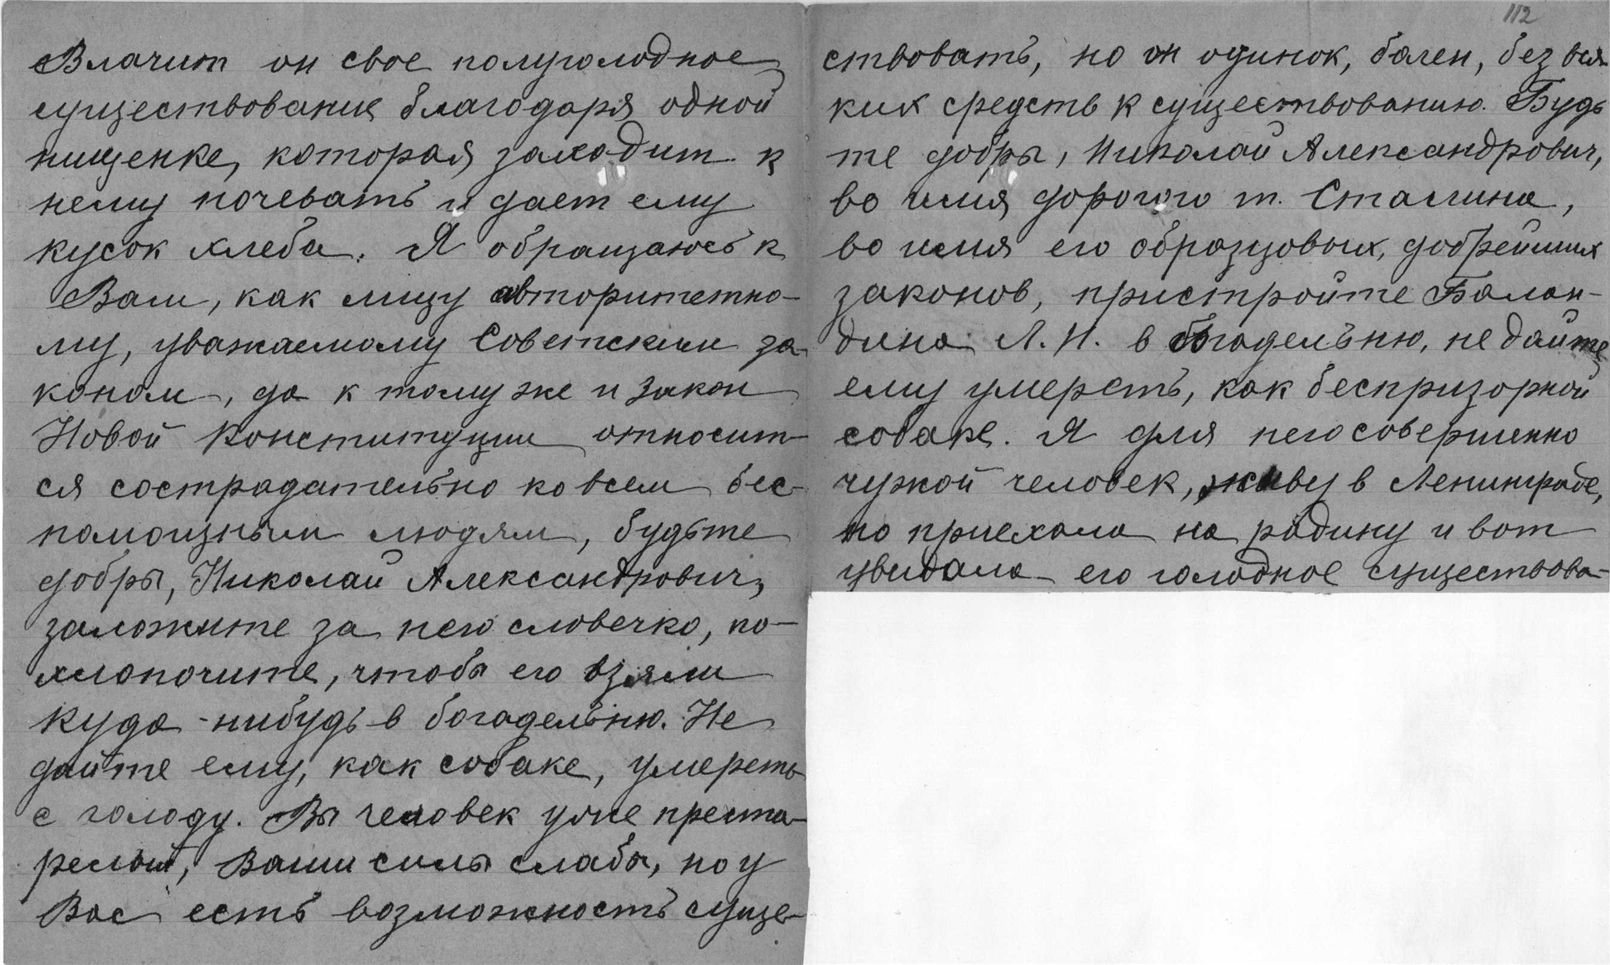 Влачит он свое полуголодное
существование благодаря одной
нищенке, которая заходит к
нему ночевать и дает ему
кусок хлеба. Я обращаюсь к
Вам, как лицу авторитетно-
му, уважаемому Советским за
коном, да к тому же и закон
Новой Конституции относит-
ся сострадательно ко всем бес-
помощным людям, будьте
добры, Николай Александрович,
заложите за него словечко, по-
хлопочите, чтобы его взяли
куда-нибудь в богадельню. Не
дайте ему, как собаке, умереть
с голоду. Вы человек уже преста-
релый, Ваши силы слабы, но у
Вас есть возможность суще-
112
ствовать, но он одинок, болен, без вся-
ких средств к существованию. Будь
те добры, Николай Александрович,
во имя дорогого т. Сталина,
во имя его образцовых, добрейших
законов, пристройте Балан-
дина Л.И. в богадельню, не дайте
ему умереть, как беспризорной
собаке. Я для него совершенно
чужой человек, живу в Ленинграде,
но приехала на родину и вот
увидала его голодное существова-